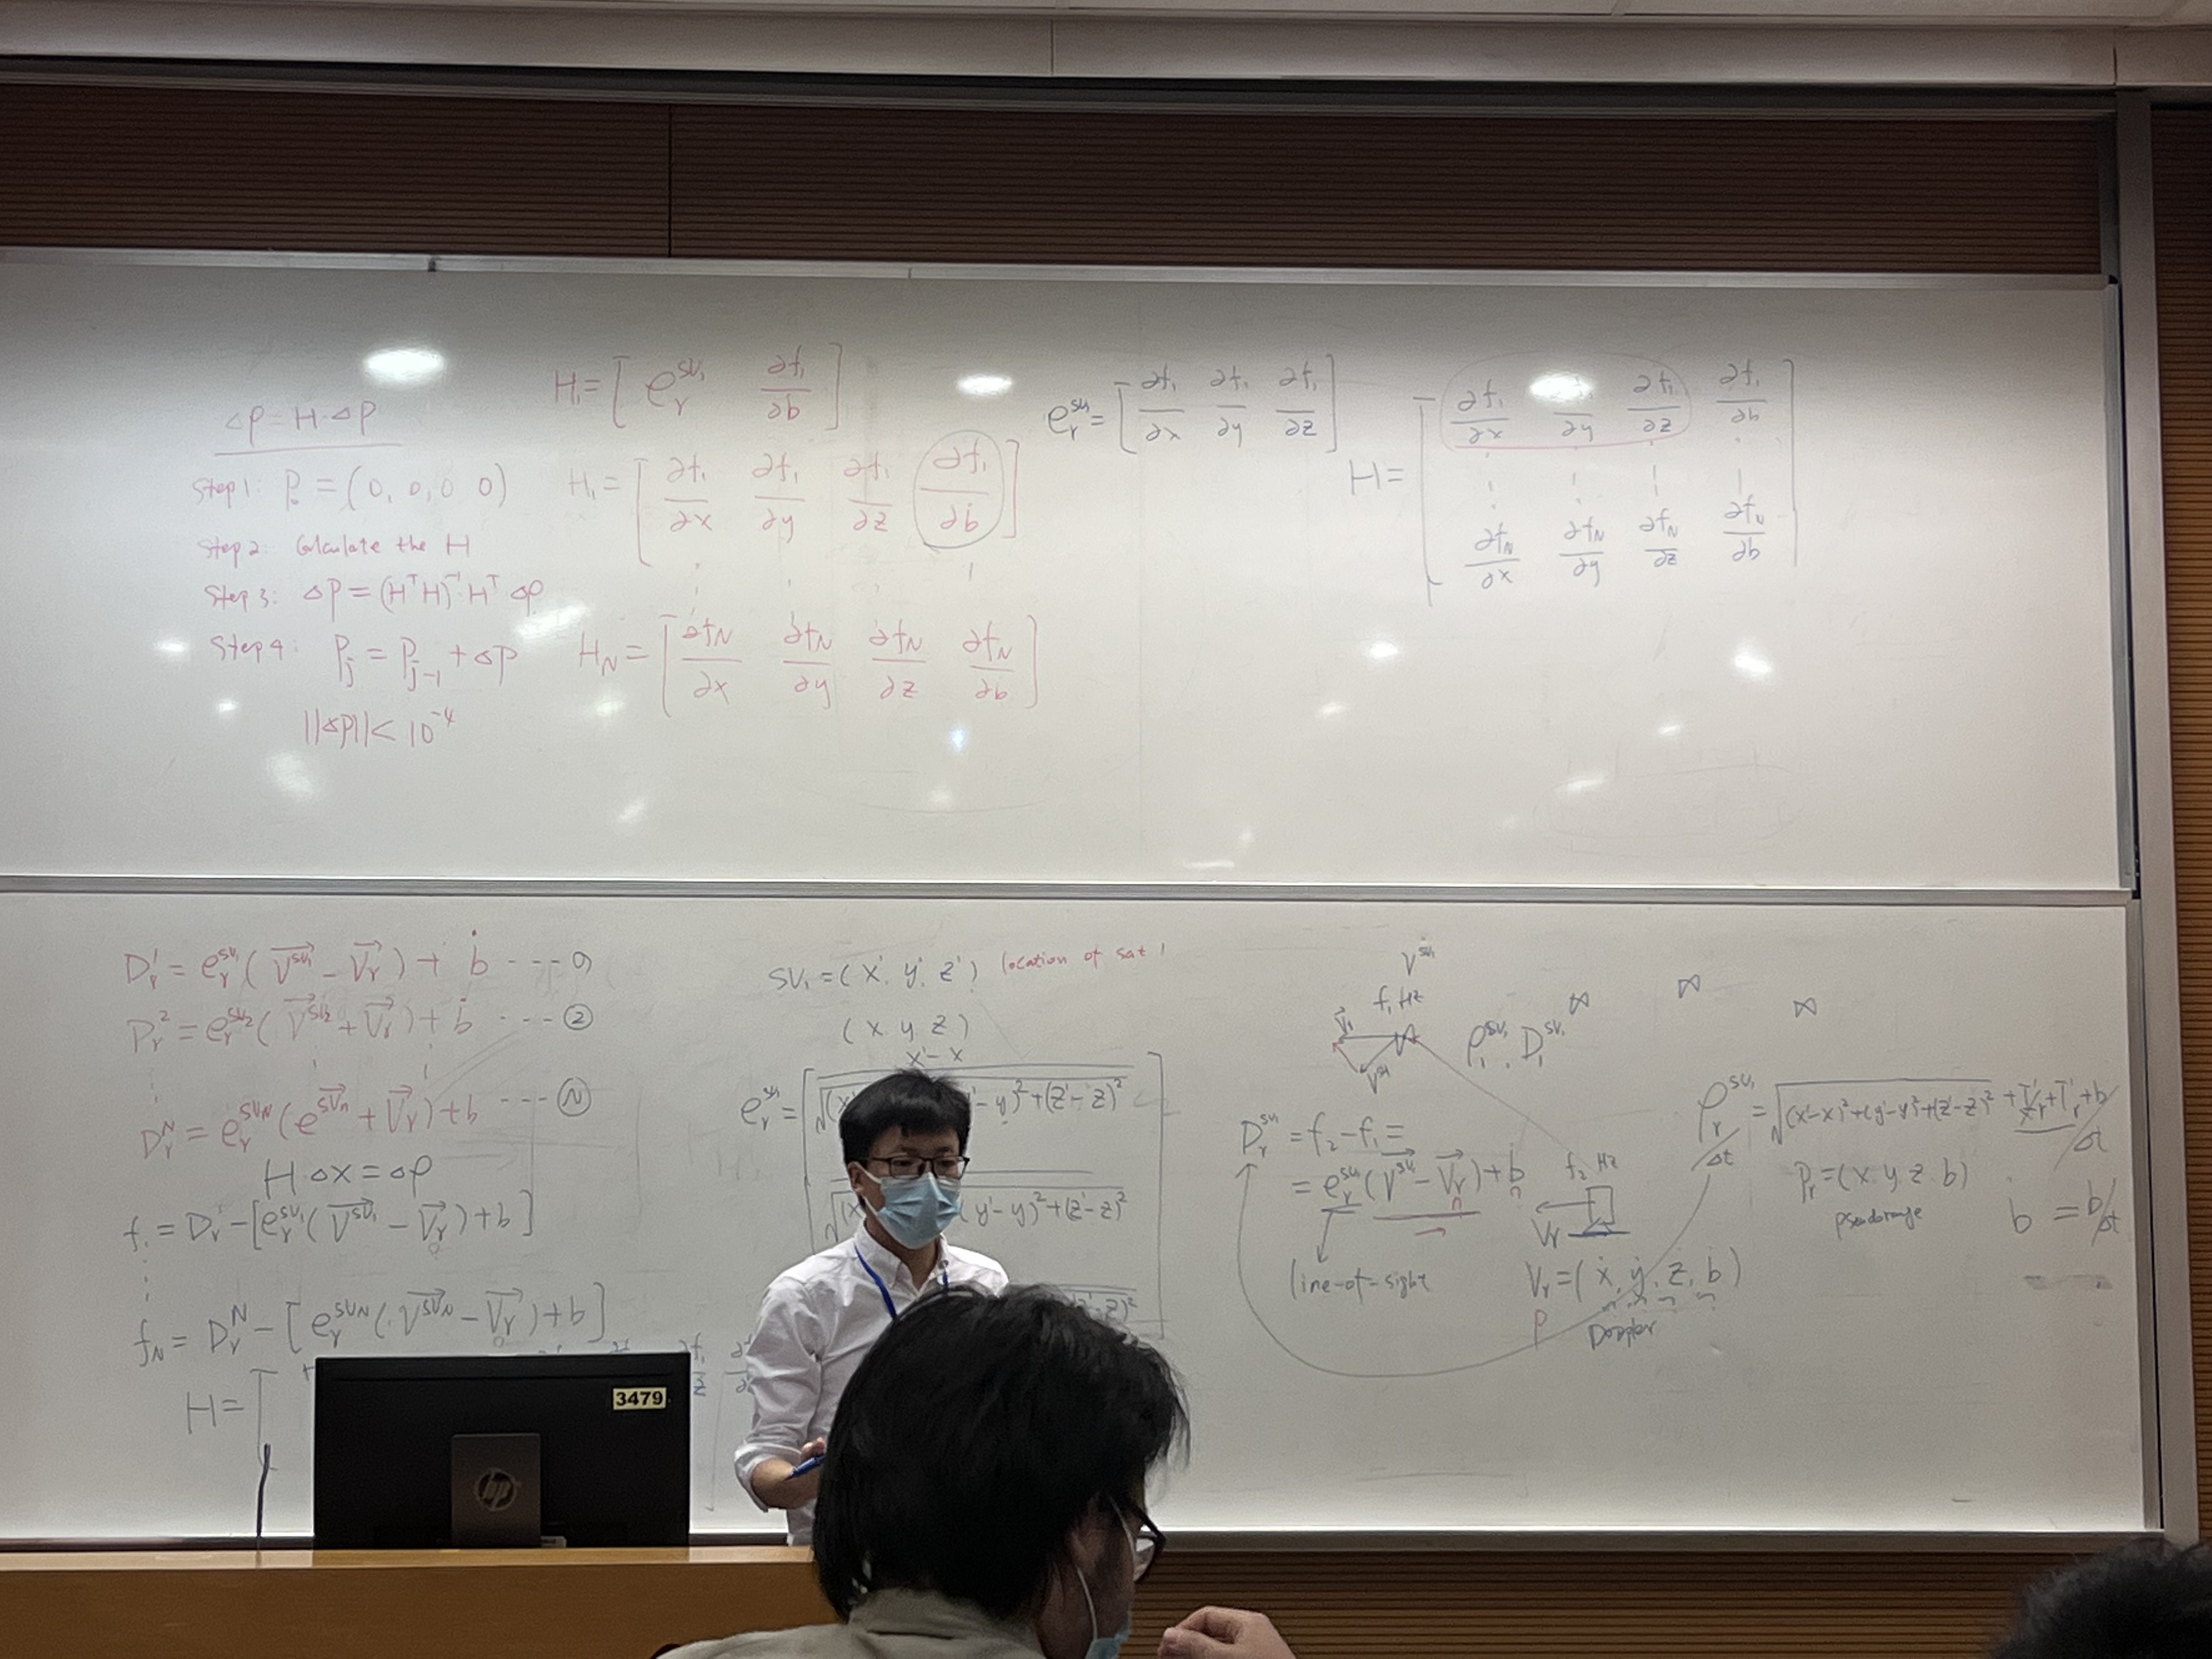 Δρ = H·ΔP
Step 1: P₀ = (0, 0, 0 0)
Step 2: Calculate the H
Step 3: ΔP = (HᵀH)⁻¹Hᵀ Δρ
Step 4: Pⱼ = Pⱼ₋₁ + ΔP
||ΔP|| < 10⁻⁴
H₁ = [ eᵣ^SV₁ ∂f₁/∂b ]
H₁ = [ ∂f₁/∂x ∂f₁/∂y ∂f₁/∂z ∂f₁/∂b ]
H_N = [ ∂f_N/∂x ∂f_N/∂y ∂f_N/∂z ∂f_N/∂b ]
eᵣ^SV₁ = [ ∂f₁/∂x ∂f₁/∂y ∂f₁/∂z ]
H = [ ∂f₁/∂x ∂f₁/∂y ∂f₁/∂z ∂f₁/∂b
∂f_N/∂x ∂f_N/∂y ∂f_N/∂z ∂f_N/∂b ]
Dᵣ¹ = eᵣ^SV₁ ( V^SV₁ − Vᵣ ) + ḃ ---
Dᵣ² = eᵣ^SV₂ ( V^SV₂ + Vᵣ ) + ḃ --- ②
Dᵣ^N = eᵣ^SVN ( e^SVn + Vᵣ ) + b --- Ⓝ
H Δx = Δρ
f₁ = Dᵣ − [ eᵣ^SV₁ ( V^SV₁ − Vᵣ ) + b ]
f_N = Dᵣ^N − [ eᵣ^SVN ( V^SVN − Vᵣ ) + b ]
H = [
SV₁ = ( x' y' z' ) location of sat 1
( x y z )
x' − x
eᵣ^SV₁ = [ − y)² + (z' − z)²
( y' − y)² + (z' − z)²
V^SV₁
f₁ Hz
V₁
V^SV₁
ρ₁^SV₁ , D₁^SV₁
Dᵣ^SV₁ = f₂ − f₁ =
= eᵣ^SV₁ ( V^SV₁ − Vᵣ ) + ḃ
line-of-sight
f₂ Hz
Vᵣ
Vᵣ = ( ẋ, ẏ, ż, ḃ )
P Doppler
ρᵣ^SV₁ / Δt = √(x'−x)² + (y'−y)² + (z'−z)² + Iᵣ + Tᵣ + b / Δt
Pᵣ = (x y z b)
pseudorange
ḃ = b/Δt
3479
hp